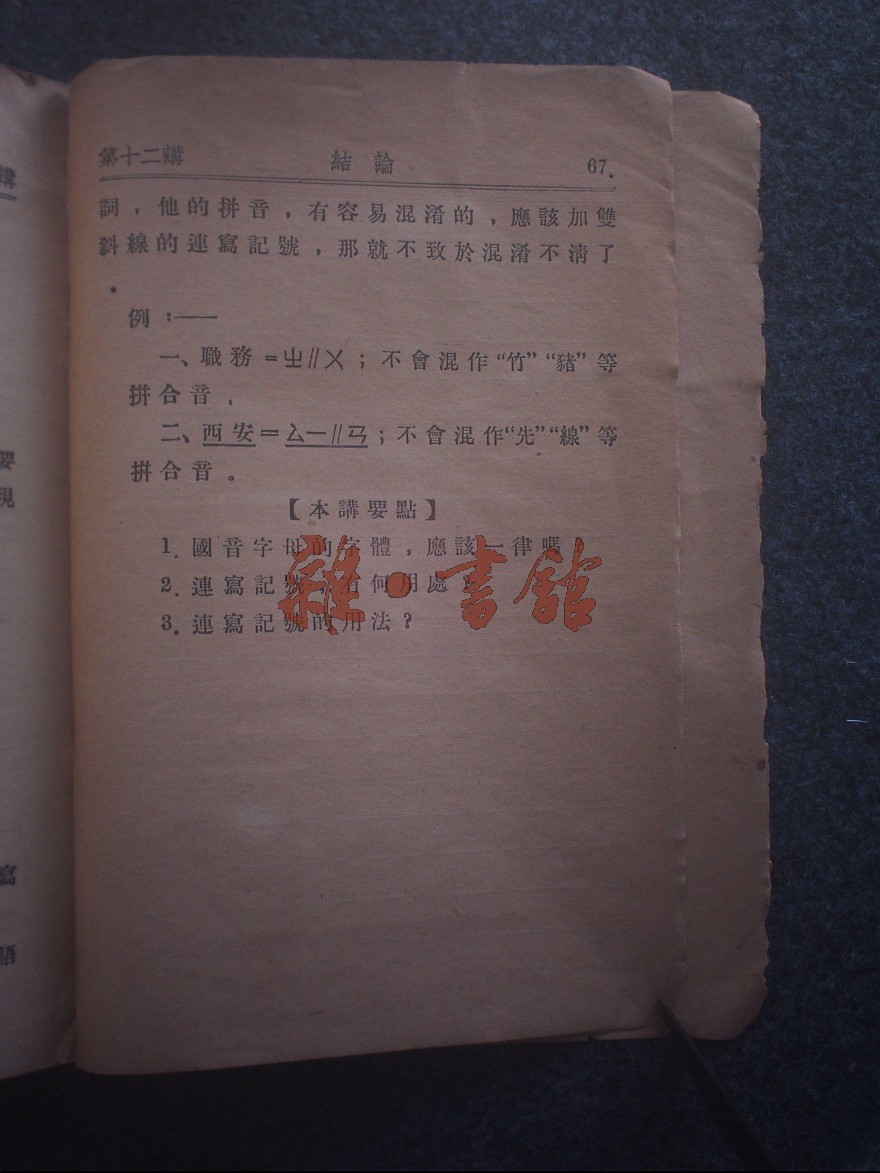 第十二講 結論 67.
詞，他的拼音，有容易混淆的，應該加雙
斜線的連寫記號，那就不致於混淆不清了
．
例：——
一、職務＝ㄓ//ㄨ；不會混作“竹”“豬”等
拼合音．
二、西安＝ㄙㄧ//ㄢ；不會混作“先”“線”等
拼合音。
【本講要點】
1. 國音字母的字體，應該一律嗎？
2. 連寫記號，有何用處？
3. 連寫記號的用法？
雜·書館
講
要
現
寫
語